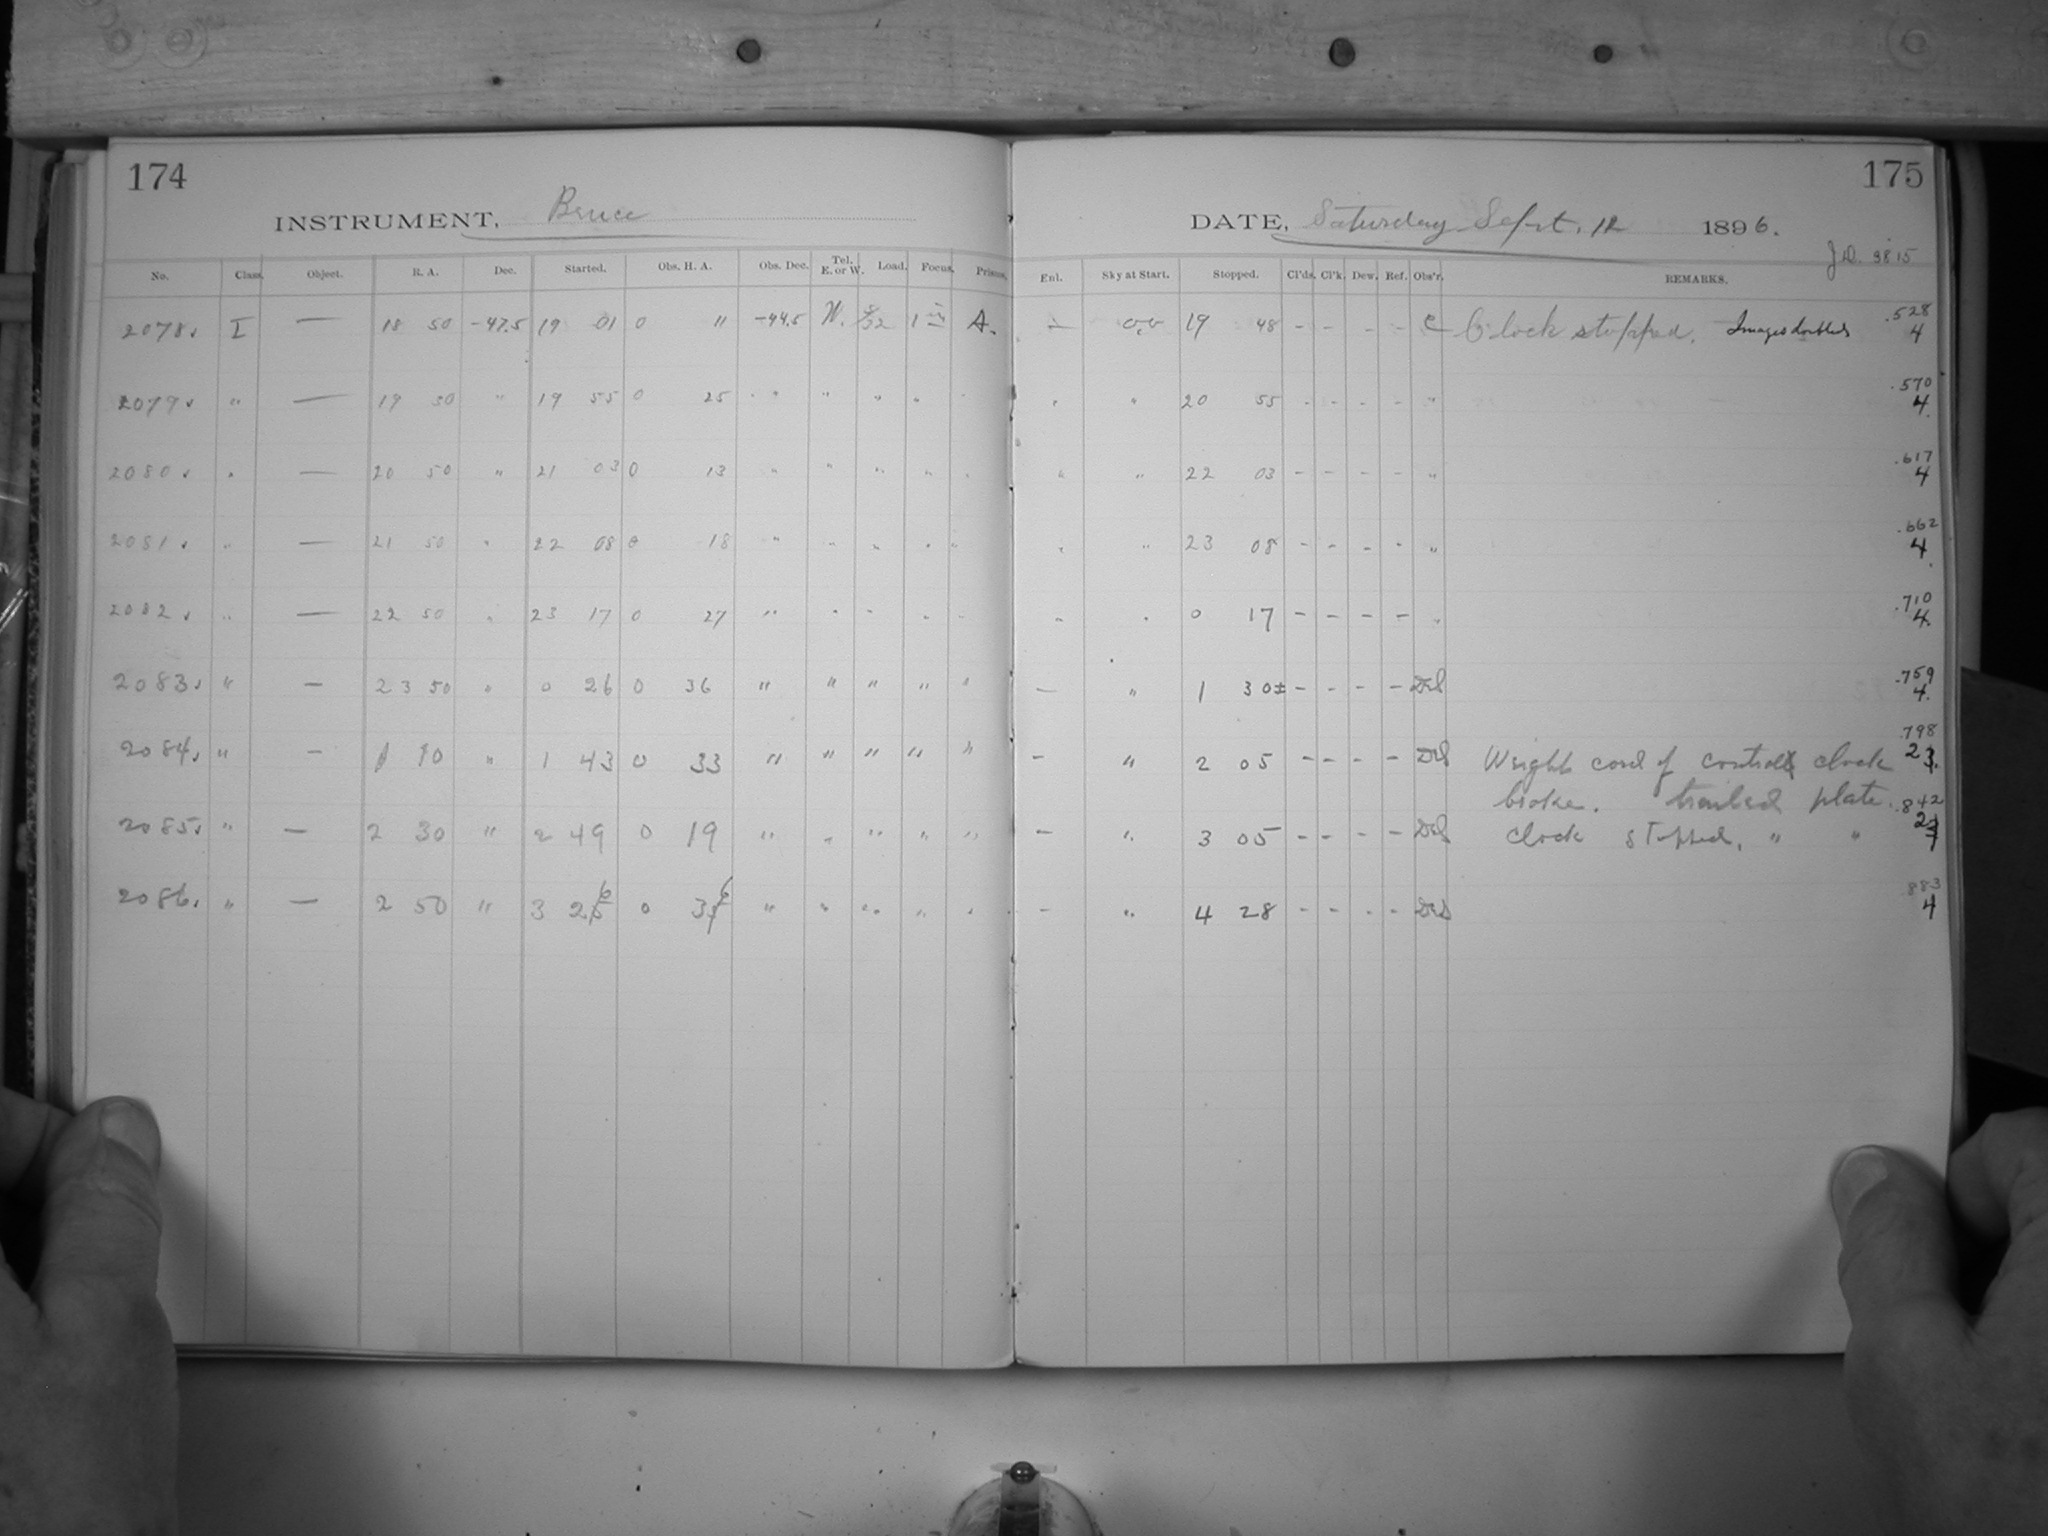 174
INSTRUMENT, Bruce
No. Class. Object. R. A. Dec. Started. Obs. H. A. Obs. Dec. Tel. E. or W. Load. Focus. Prisms.
2078. I — 18 50 -47.5 19 01 0 11 -44.5 W. A.
2079. " — 19 50 " 19 55 0 25 " " " "
2080. " — 20 50 " 21 03 0 13 " " " " "
2081. " — 21 50 " 22 08 0 18 " " " " "
2082. " — 22 50 " 23 17 0 27 " " " " "
2083. " — 23 50 " 0 26 0 36 " " " " "
2084. " — 1 10 " 1 43 0 33 " " " " "
2085. " — 2 30 " 2 49 0 19 " " " " "
2086. " — 2 50 " 3 26 0 36 " " " " "
175
DATE, Saturday Sept. 12 1896.
J.D. 3815
Enl. Sky at Start. Stopped. Cl'ds. Cl'k. Dew. Ref. Obs'r. REMARKS.
— 19 48 - - - - C Clock stopped. Images doubled .528 4
" " 20 55 - - - - " .570 4.
" " 22 03 - - - - " .617 4
" " 23 08 - - - - " .662 4.
" " 0 17 - - - - " .710 4.
— " 1 30± - - - - .759 4.
— " 2 05 - - - - Weight cord of control clock .798
broke. trailed plate.
— " 3 05 - - - - clock stopped. " " .842
— " 4 28 - - - - .883 4